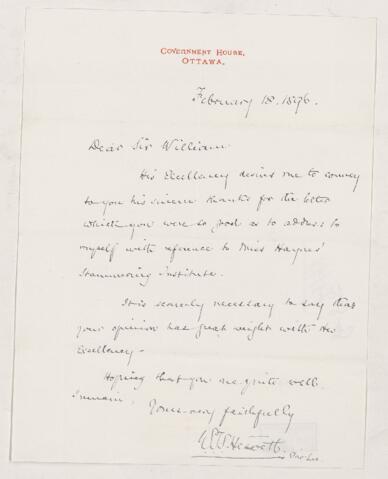 GOVERNMENT HOUSE,
OTTAWA.
February 18. 1896.
Dear Sir William
His Excellency desires me to convey
to you his sincere thanks for the letter
which you were so good as to address to
myself with reference to Miss Haynes'
Stammering Institute.
It is scarcely necessary to say that
your opinion has great weight with His
Excellency –
Hoping that you are quite well.
I remain,
Yours very faithfully